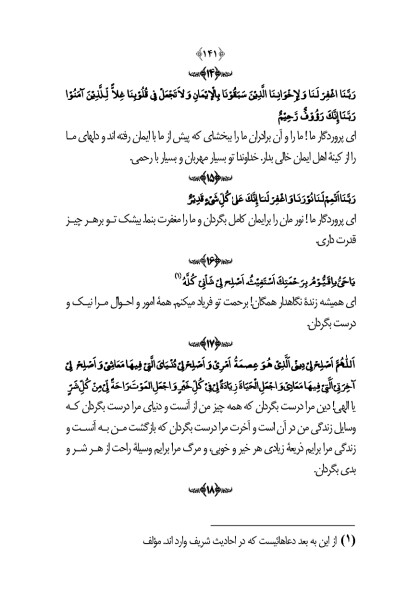 ﴿۱۴۱﴾
﴿۱۴﴾
رَبَّنَا اغْفِرْ لَنَا وَلِإِخْوَانِنَا الَّذِينَ سَبَقُونَا بِالْإِيمَانِ وَلَا تَجْعَلْ فِي قُلُوبِنَا غِلاًّ لِلَّذِينَ آمَنُوا
رَبَّنَا إِنَّكَ رَؤُوفٌ رَحِيمٌ
ای پروردگار ما! ما را و آن برادران ما را ببخشای که پیش از ما با ایمان رفته اند و دلهای ما
را از کینۀ اهل ایمان خالی بدار. خداوندا تو بسیار مهربان و بسیار با رحمی.
﴿۱۵﴾
رَبَّنَا أَتْمِمْ لَنَا نُورَنَا وَاغْفِرْ لَنَا إِنَّكَ عَلَىٰ كُلِّ شَيْءٍ قَدِيرٌ
ای پروردگار ما! نور مان را برایمان کامل بگردان و ما را مغفرت بنما. بیشک تو برهر چیز
قدرت داری.
﴿۱۶﴾
يَا حَيُّ يَا قَيُّومُ بِرَحْمَتِكَ أَسْتَغِيثُ، أَصْلِحْ لِي شَأْنِي كُلَّهُ (۱)
ای همیشه زندۀ نگاهدار همگان! برحمت تو فریاد میکنم. همۀ امور و احوال مرا نیک و
درست بگردان.
﴿۱۷﴾
اَللّٰهُمَّ أَصْلِحْ لِي دِينِي الَّذِي هُوَ عِصْمَةُ أَمْرِي وَأَصْلِحْ لِي دُنْيَايَ الَّتِي فِيهَا مَعَاشِي وَأَصْلِحْ لِي
آخِرَتِي الَّتِي فِيهَا مَعَادِي وَاجْعَلِ الْحَيَاةَ زِيَادَةً لِي فِي كُلِّ خَيْرٍ وَاجْعَلِ الْمَوْتَ رَاحَةً لِي مِنْ كُلِّ شَرٍّ
یا الهی! دین مرا درست بگردان که همه چیز من از آنست و دنیای مرا درست بگردان که
وسایل زندگی من در آن است و آخرت مرا درست بگردان که بازگشت من به آنست و
زندگی مرا برایم ذریعۀ زیادی هر خیر و خوبی، و مرگ مرا برایم وسیلۀ راحت از هر شر و
بدی بگردان.
﴿۱۸﴾
(۱) از این به بعد دعاهائیست که در احادیث شریف وارد اند. مؤلف